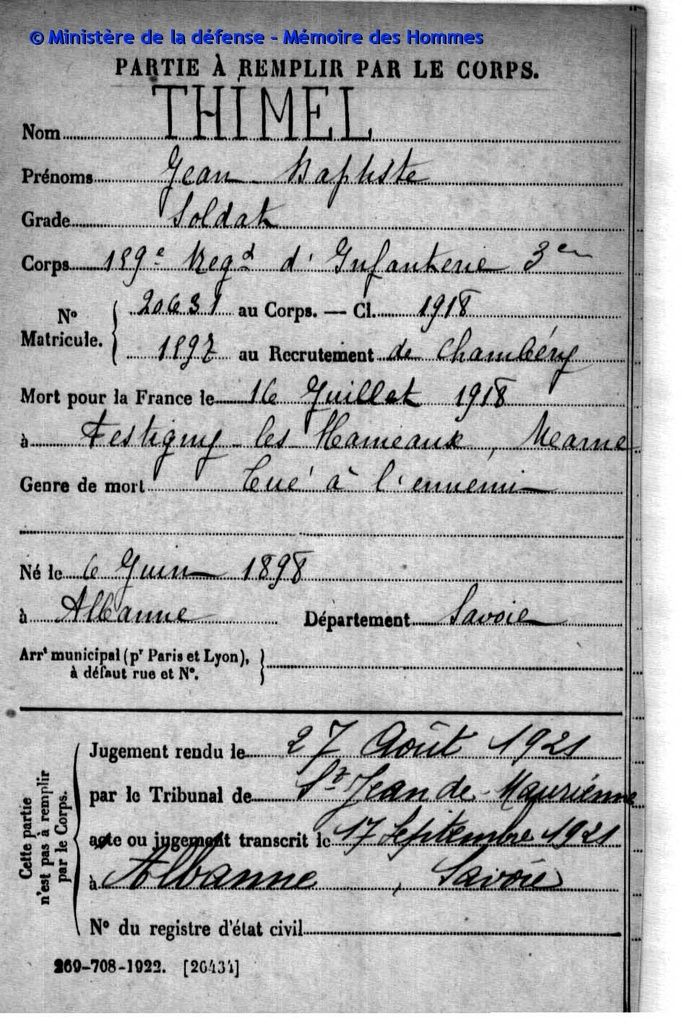 © Ministère de la défense - Mémoire des Hommes
PARTIE À REMPLIR PAR LE CORPS.
Nom THIMEL
Prénoms Jean Baptiste
Grade Soldat
Corps 159e Regd d'Infanterie 3e
No Matricule. 20631 au Corps. — Cl. 1918
1897 au Recrutement de Chambéry
Mort pour la France le 16 Juillet 1918
à Festigny les Hameaux, Marne
Genre de mort Tué à l'ennemi
Né le 6 Juin 1898
à Albanne Département Savoie
Arrt municipal (pr Paris et Lyon),
à défaut rue et No.
Cette partie
n'est pas à remplir
par le Corps.
Jugement rendu le 27 Août 1921
par le Tribunal de St Jean de Maurienne
acte ou jugement transcrit le 17 Septembre 1921
à Albanne, Savoie
No du registre d'état civil
269-708-1922. [26434]